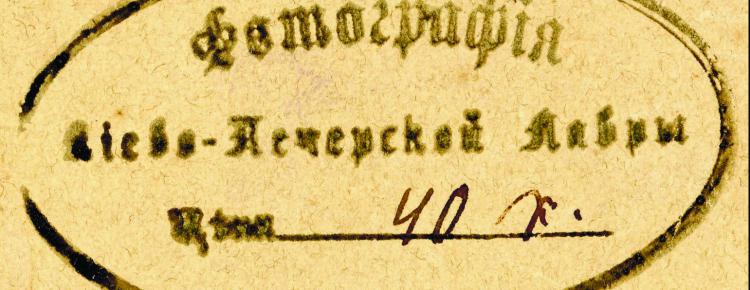 Фотографія
Кіево-Печерской Лавры
Цѣна 40 к.